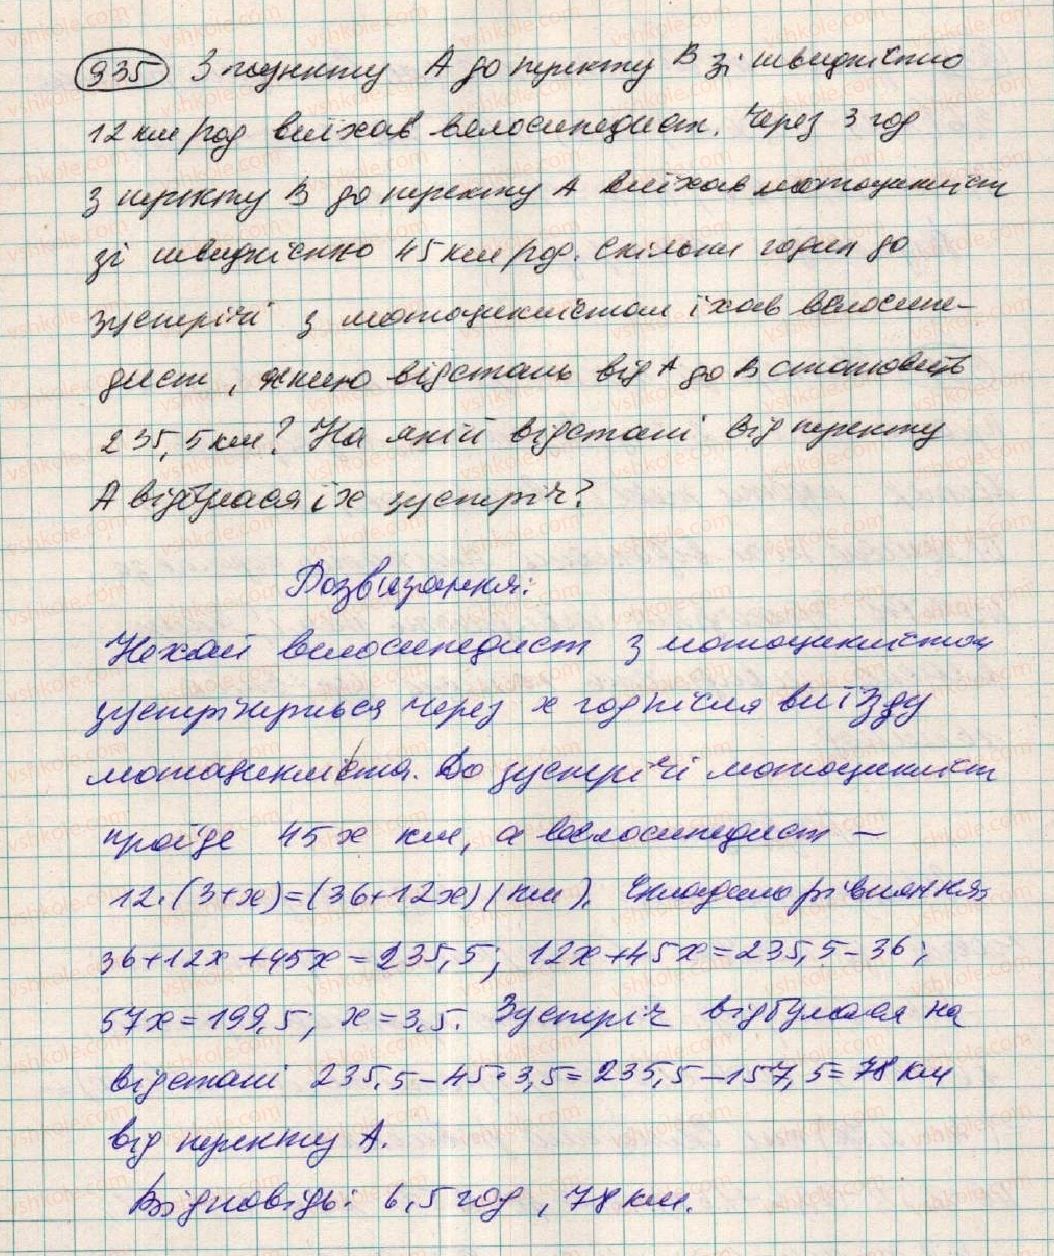 935 З пункту А до пункту В зі швидкістю
12 км/год виїхав велосипедист. Через 3 год
з пункту В до пункту А виїхав мотоцикліст
зі швидкістю 45 км/год. Скільки годин до
зустрічі з мотоциклістом їхав велосипе-
дист, якщо відстань від А до В становить
235,5 км? На якій відстані від пункту
А відбулася їх зустріч?
Розв'язання:
Нехай велосипедист з мотоциклістом
зустрінуться через х год після виїзду
мотоцикліста. До зустрічі мотоцикліст
проїде 45х км, а велосипедист –
12·(3+х)=(36+12х) (км). Складемо рівняння:
36+12х+45х=235,5; 12х+45х=235,5-36;
57х=199,5; х=3,5. Зустріч відбулася на
відстані 235,5-45·3,5=235,5-157,5=78 км
від пункту А.
Відповідь: 6,5 год, 78 км.
vshkole.com